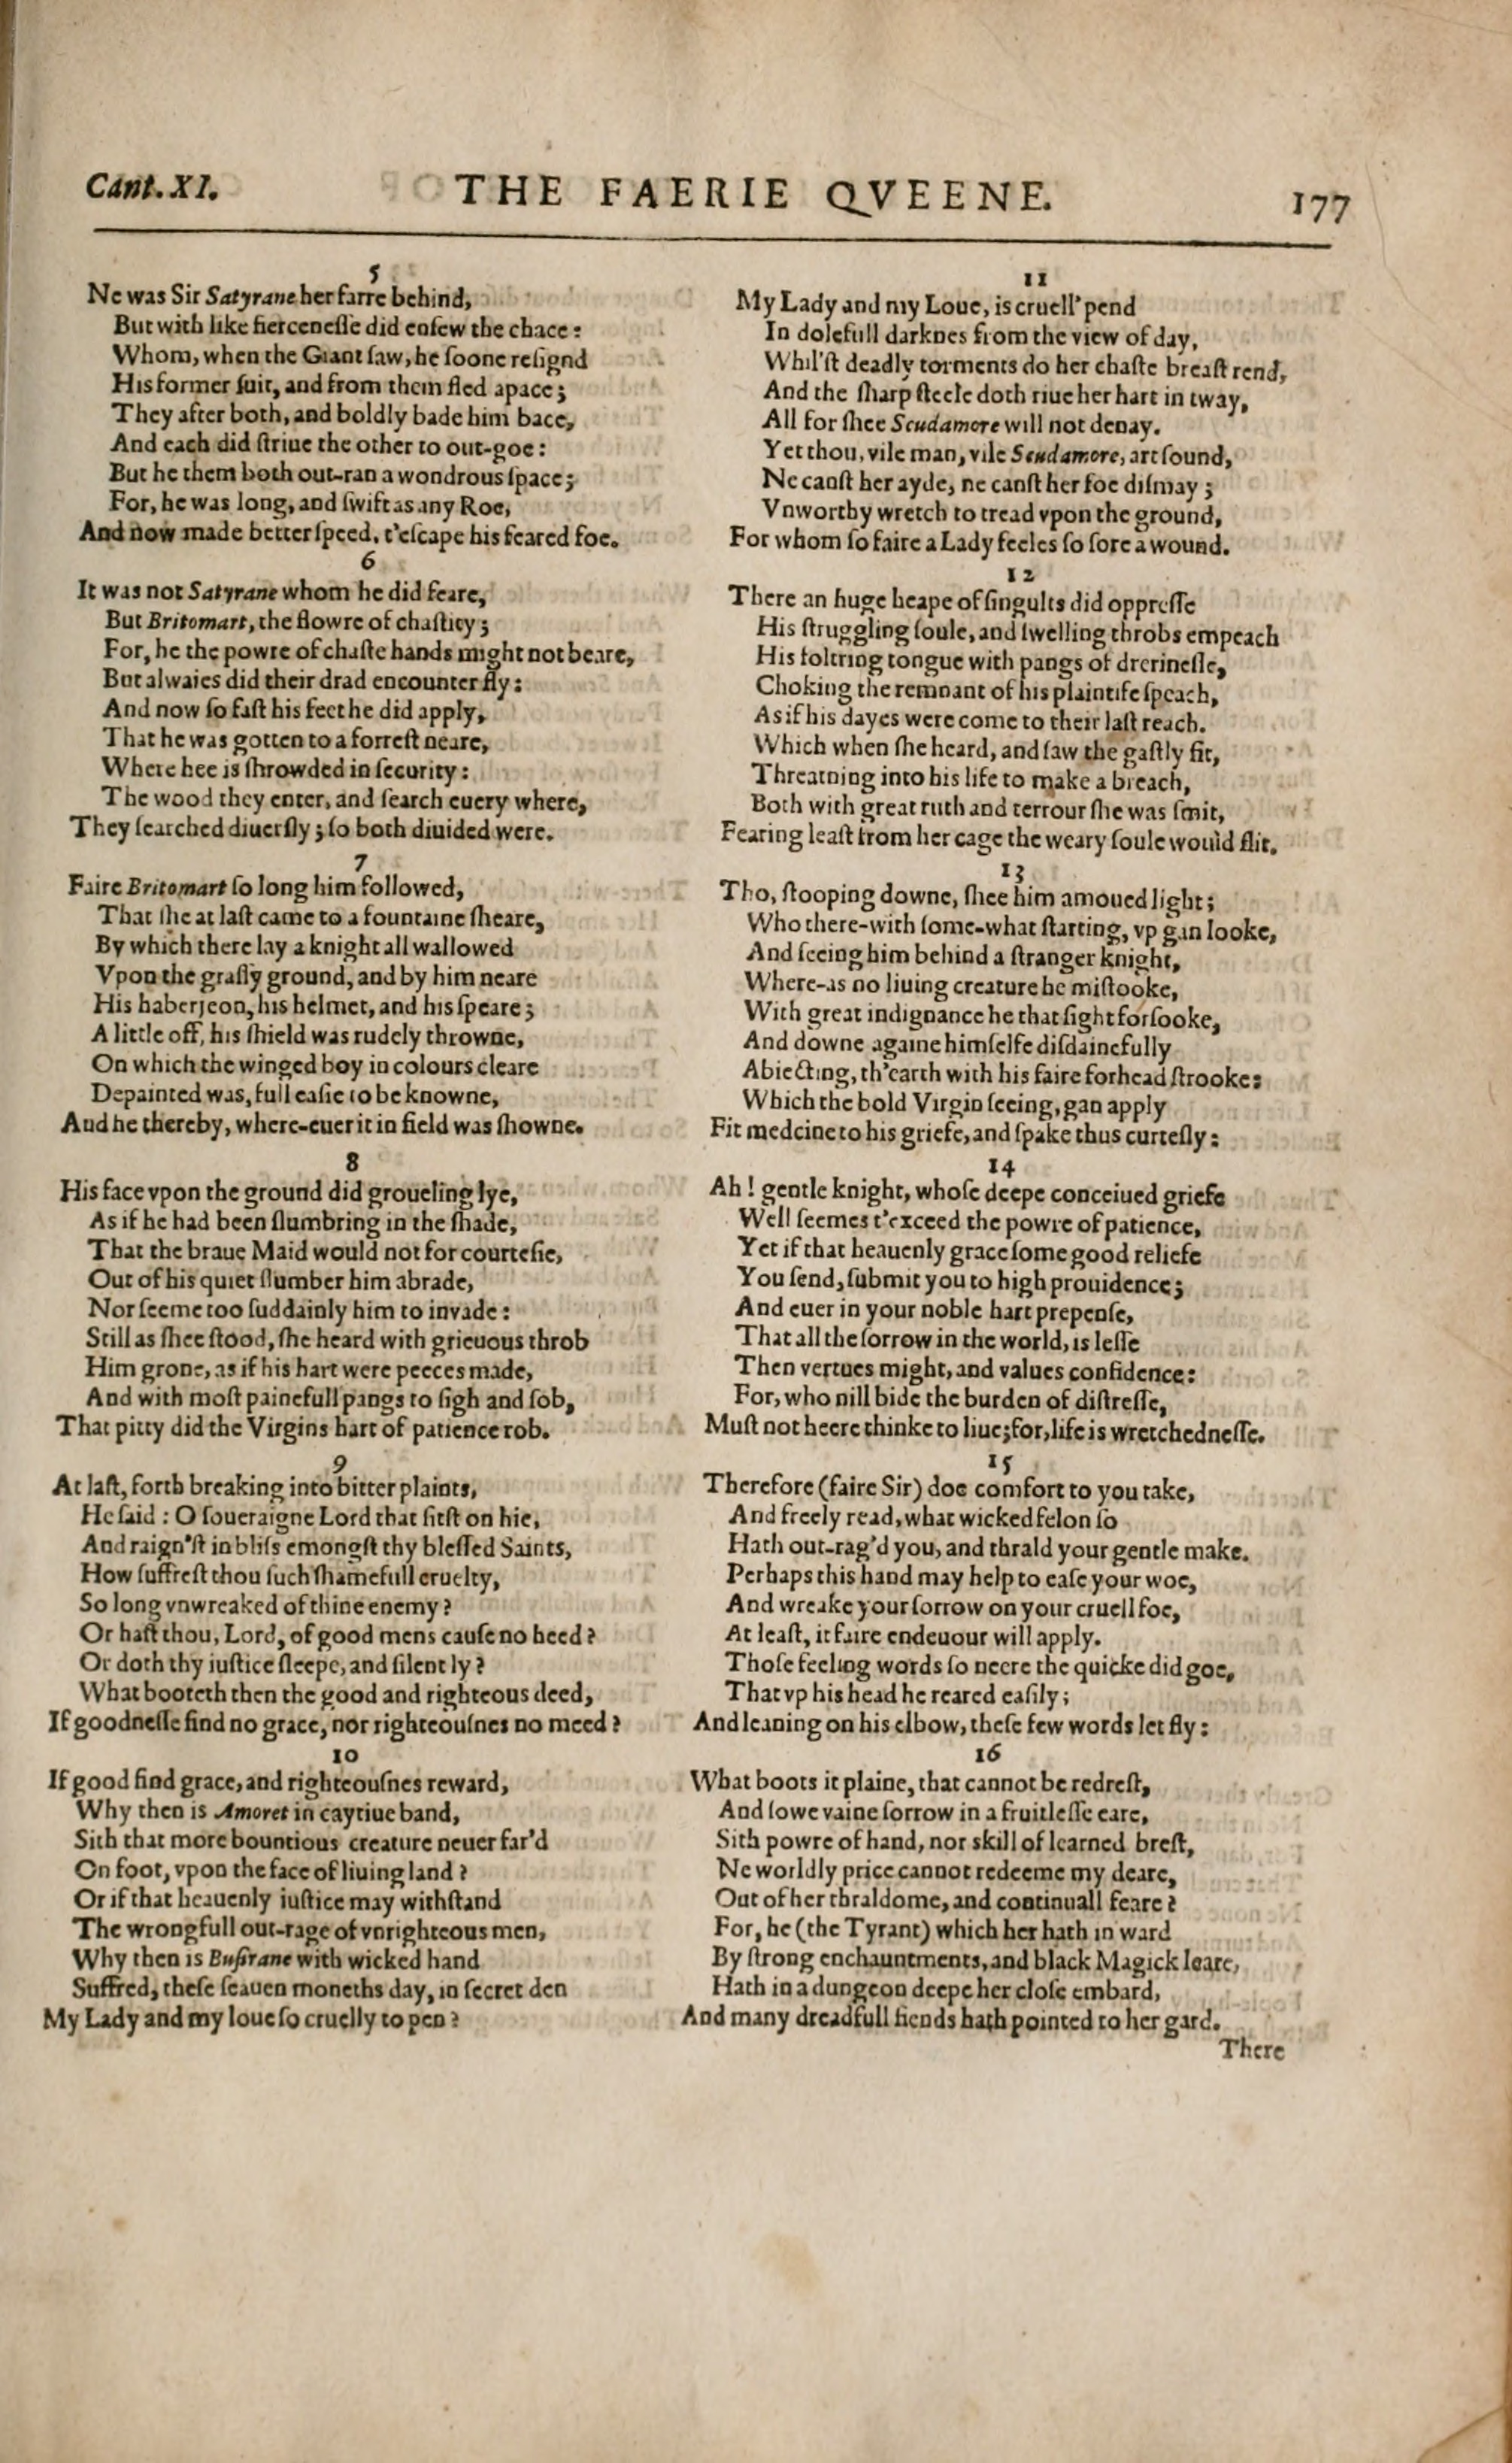 Cant. XI.
THE FAERIE QVEENE.
177
5
Ne was Sir Satyrane her farre behind,
But with like fierceneſſe did enſew the chace:
Whom, when the Giant ſaw, he ſoone reſignd
His former ſuit, and from them fled apace;
They after both, and boldly bade him bace,
And each did ſtriue the other to out-goe:
But he them both out-ran a wondrous ſpace;
For, he was long, and ſwift as any Roe,
And now made better ſpeed, t'eſcape his feared foe.
6
It was not Satyrane whom he did feare,
But Britomart, the flowre of chaſtity;
For, he the powre of chaſte hands might not beare,
But alwaies did their drad encounter fly:
And now ſo faſt his feet he did apply,
That he was gotten to a forreſt neare,
Where hee is ſhrowded in ſecurity:
The wood they enter, and ſearch euery where,
They ſearched diuerſly; ſo both diuided were.
7
Faire Britomart ſo long him followed,
That ſhe at laſt came to a fountaine ſheare,
By which there lay a knight all wallowed
Vpon the graſſy ground, and by him neare
His haberjeon, his helmet, and his ſpeare;
A little off, his ſhield was rudely throwne,
On which the winged boy in colours cleare
Depainted was, full eaſie to be knowne,
And he thereby, where-euer it in field was ſhowne.
8
His face vpon the ground did groueling lye,
As if he had been ſlumbring in the ſhade,
That the braue Maid would not for courteſie,
Out of his quiet ſlumber him abrade,
Nor ſeeme too ſuddainly him to invade:
Still as ſhee ſtood, ſhe heard with grieuous throb
Him grone, as if his hart were peeces made,
And with moſt painefull pangs to ſigh and ſob,
That pitty did the Virgins hart of patience rob.
9
At laſt, forth breaking into bitter plaints,
He ſaid: O ſoueraigne Lord that ſitſt on hie,
And raign'ſt in bliſs emongſt thy bleſſed Saints,
How ſuffreſt thou ſuch ſhamefull cruelty,
So long vnwreaked of thine enemy?
Or haſt thou, Lord, of good mens cauſe no heed?
Or doth thy iuſtice ſleepe, and ſilent ly?
What booteth then the good and righteous deed,
If goodneſſe find no grace, nor righteouſnes no meed?
10
If good find grace, and righteouſnes reward,
Why then is Amoret in caytiue band,
Sith that more bountious creature neuer far'd
On foot, vpon the face of liuing land?
Or if that heauenly iuſtice may withſtand
The wrongfull out-rage of vnrighteous men,
Why then is Buſirane with wicked hand
Suffred, theſe ſeauen moneths day, in ſecret den
My Lady and my loue ſo cruelly to pen?
11
My Lady and my Loue, is cruell' pend
In dolefull darknes from the view of day,
Whil'ſt deadly torments do her chaſte breaſt rend,
And the ſharp ſteele doth riue her hart in tway,
All for ſhee Scudamore will not denay.
Yet thou, vile man, vile Scudamore, art ſound,
Ne canſt her ayde, ne canſt her foe diſmay;
Vnworthy wretch to tread vpon the ground,
For whom ſo faire a Lady feeles ſo ſore a wound.
12
There an huge heape of ſingults did oppreſſe
His ſtruggling ſoule, and ſwelling throbs empeach
His foltring tongue with pangs of drerineſſe,
Choking the remnant of his plaintife ſpeach,
As if his dayes were come to their laſt reach.
Which when ſhe heard, and ſaw the gaſtly fit,
Threatning into his life to make a breach,
Both with great ruth and terrour ſhe was ſmit,
Fearing leaſt from her cage the weary ſoule would flit.
13
Tho, ſtooping downe, ſhee him amoued light;
Who there-with ſome-what ſtarting, vp gan looke,
And ſeeing him behind a ſtranger knight,
Where-as no liuing creature he miſtooke,
With great indignance he that ſight forſooke,
And downe againe himſelfe diſdainefully
Abiecting, th'earth with his faire forhead ſtrooke:
Which the bold Virgin ſeeing, gan apply
Fit medcine to his griefe, and ſpake thus curteſly:
14
Ah! gentle knight, whoſe deepe conceiued griefe
Well ſeemes t'exceed the powre of patience,
Yet if that heauenly grace ſome good reliefe
You ſend, ſubmit you to high prouidence;
And euer in your noble hart prepenſe,
That all the ſorrow in the world, is leſſe
Then vertues might, and values confidence:
For, who nill bide the burden of diſtreſſe,
Muſt not heere thinke to liue; for, life is wretchedneſſe.
15
Therefore (faire Sir) doe comfort to you take,
And freely read, what wicked felon ſo
Hath out-rag'd you, and thrald your gentle make.
Perhaps this hand may help to eaſe your woe,
And wreake your ſorrow on your cruell foe,
At leaſt, it faire endeuour will apply.
Thoſe feeling words ſo neere the quicke did goe,
That vp his head he reared eaſily;
And leaning on his elbow, theſe few words let fly:
16
What boots it plaine, that cannot be redreſt,
And ſowe vaine ſorrow in a fruitleſſe eare,
Sith powre of hand, nor skill of learned breſt,
Ne worldly price cannot redeeme my deare,
Out of her thraldome, and continuall feare?
For, he (the Tyrant) which her hath in ward
By ſtrong enchauntments, and black Magick leare,
Hath in a dungeon deepe her cloſe embard,
And many dreadfull fiends hath pointed to her gard.
There